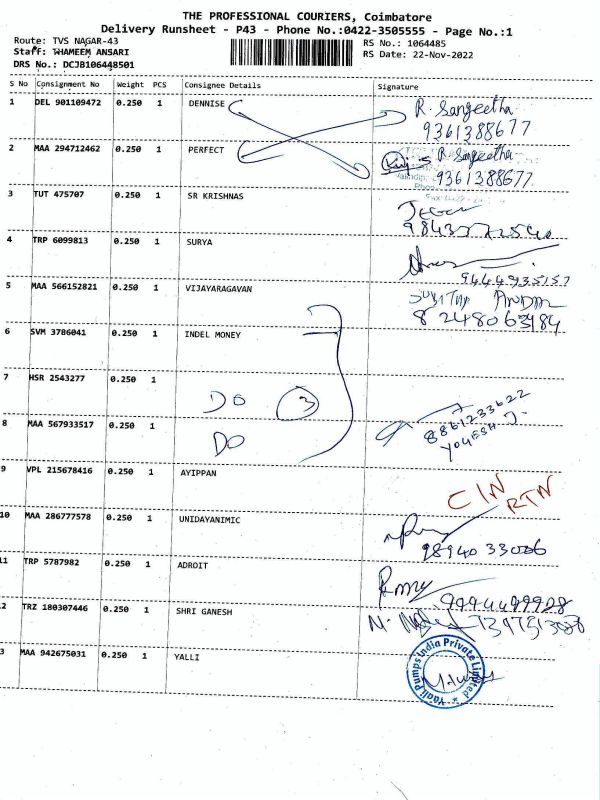 THE PROFESSIONAL COURIERS, Coimbatore
Delivery Runsheet - P43 - Phone No.:0422-3505555 - Page No.:1
Route: TVS NAGAR-43
RS No.: 1064485
Staff: THAMEEM ANSARI
RS Date: 22-Nov-2022
DRS No.: DCJB106448501
S No Consignment No Weight PCS Consignee Details Signature
1 DEL 901109472 0.250 1 DENNISE R. Sangeetha
9361388677
2 MAA 294712462 0.250 1 PERFECT R Sangeetha
9361388677
3 TUT 475707 0.250 1 SR KRISHNAS
4 TRP 6099813 0.250 1 SURYA
9444935157
5 MAA 566152821 0.250 1 VIJAYARAGAVAN
8248063184
6 SVM 3786041 0.250 1 INDEL MONEY
7 HSR 2543277 0.250 1
DO 3
8861233622
8 MAA 567933517 0.250 1 DO YOGESH J.
9 VPL 215678416 0.250 1 AYIPPAN
C/N RTN
10 MAA 286777578 0.250 1 UNIDAYANIMIC
98940 33026
11 TRP 5787982 0.250 1 ADROIT
9994499928
2 TRZ 180307446 0.250 1 SHRI GANESH
3 MAA 942675031 0.250 1 YALLI
Yaali Pumps India Private Limited